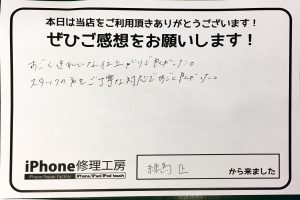 本日は当店をご利用頂きありがとうございます！
ぜひご感想をお願いします！
すごくきれいな仕上がりで良かった。
スタッフの方もご丁寧な対応ですごく良かった。
iPhone修理工房
iPhone Repair Factory iPhone/iPad/iPod touch
練馬区 から来ました